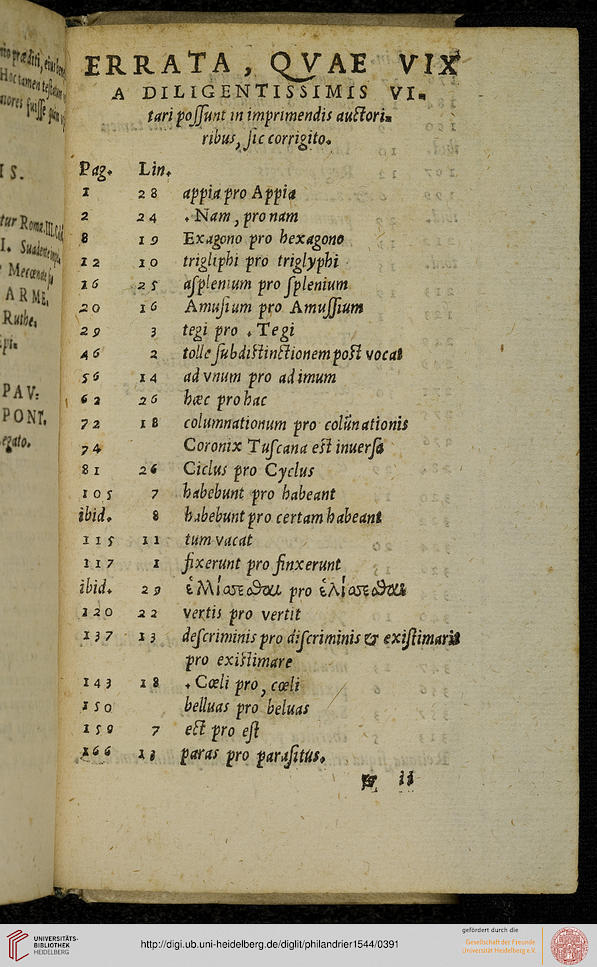 ERRATA, QVAE VIX
A DILIGENTISSIMIS VI-
tari poſſunt in imprimendis auctori-
ribus, ſic corrigito.
Pag. Lin.
1 28 appia pro Appia
2 24 . Nam, pro nam
8 19 Exagono pro hexagono
12 10 trigliphi pro triglyphi
16 25 aſplenium pro ſplenium
20 16 Amuſium pro Amuſſium
29 3 tegi pro . Tegi
46 2 tolle ſubdiſtinctionem poſt vocat
56 14 ad vnum pro ad imum
62 26 hæc pro hac
72 18 columnationum pro colūnationis
74 Coronix Tuſcana eſt inuerſa
81 26 Ciclus pro Cyclus
105 7 habebunt pro habeant
ibid. 8 habebunt pro certam habeant
115 11 tum vacat
117 1 fixerunt pro finxerunt
ibid. 29 pro
120 22 vertis pro vertit
137 13 deſcriminis pro diſcriminis & exiſtimaris
pro exiſtimare
143 18 . Cœli pro, cœli
150 belluas pro beluas
159 7 ect pro eſt
166 13 paras pro paraſitus.
ij
IS.
tur Romæ.III.Cal
I. Suadente
Mercœnde
ARME,
Ruthe,
PAV:
PONT.
egato.
UNIVERSITÄTS-
BIBLIOTHEK
HEIDELBERG
http://digi.ub.uni-heidelberg.de/diglit/philandrier1544/0391
gefördert durch die
Gesellschaft der Freunde
Universität Heidelberg e.V.